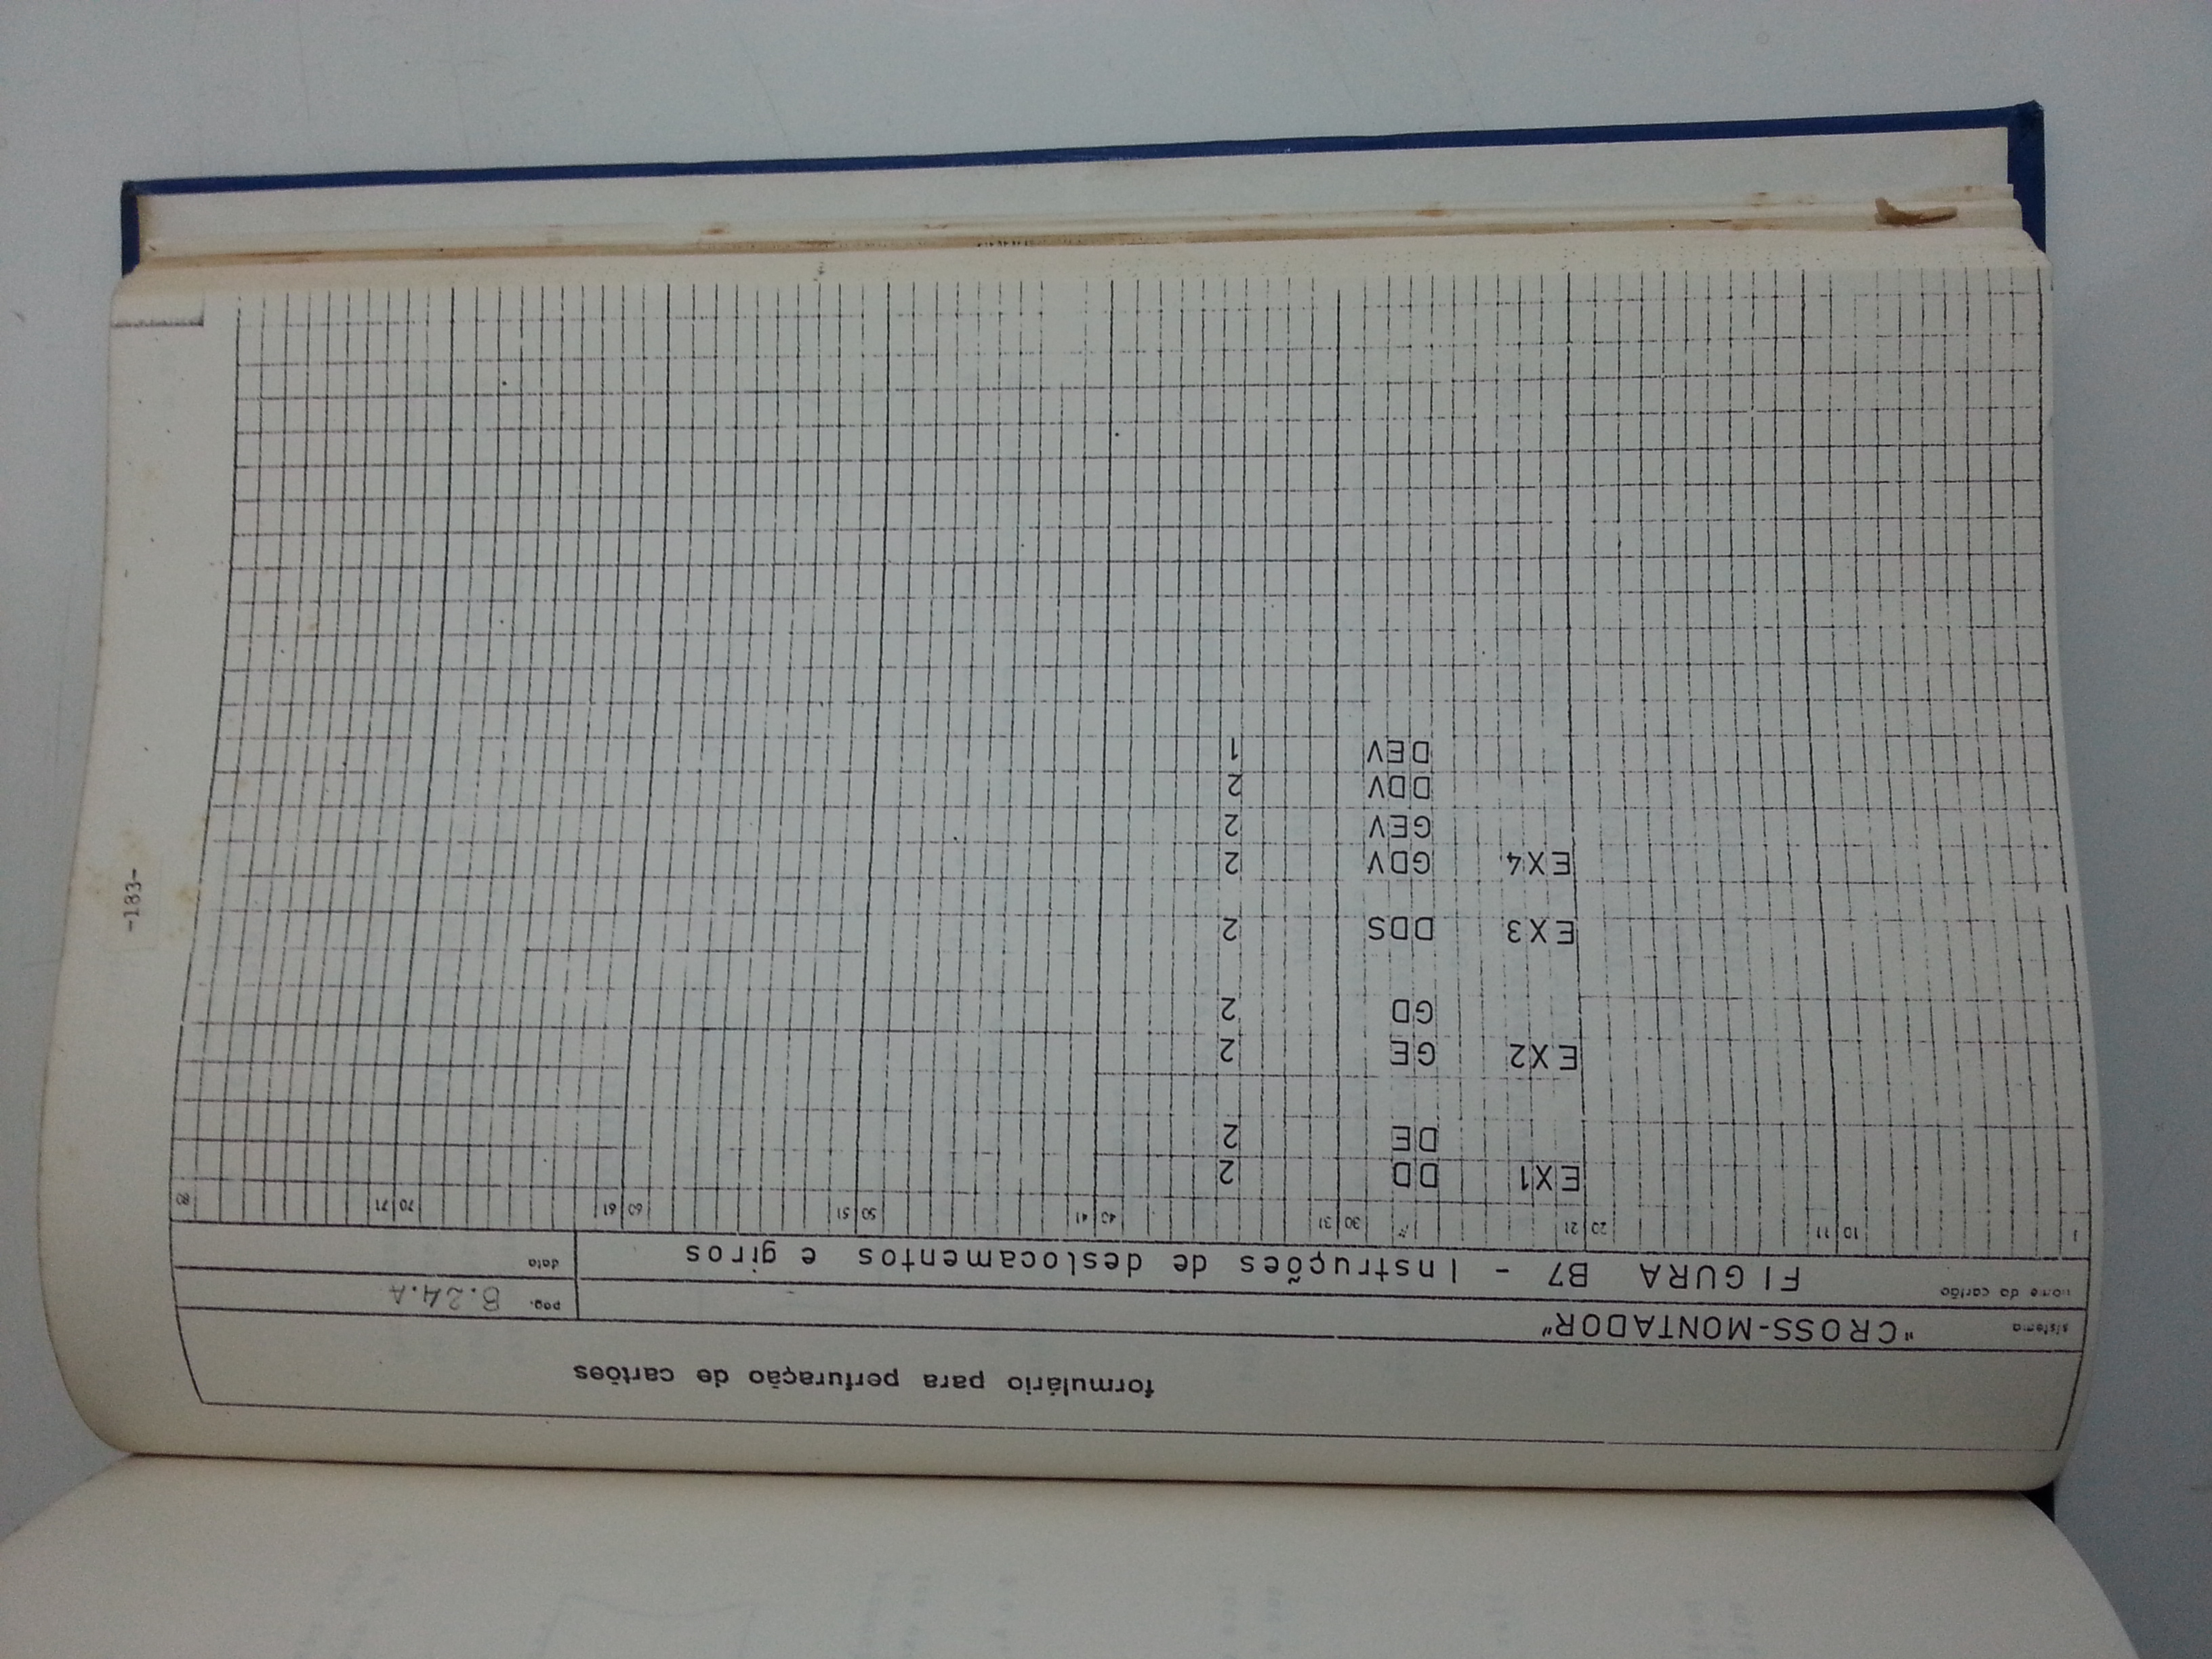 -183-
formulário para perfuração de cartões
sistema "CROSS-MONTADOR" pag. B.24.A
nome do cartão FIGURA B7 - Instruções de deslocamentos e giros data
1 10 11 20 21 30 31 40 41 50 51 60 61 70 71 80
EX1 DD 2
DE 2
EX2 GE 2
GD 2
EX3 DDS 2
EX4 GDV 2
GEV 2
DDV 2
DEV 1